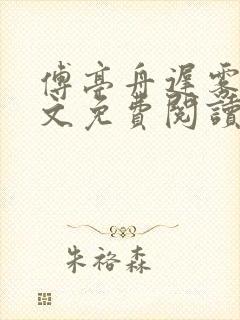 傅亭舟遲霧
文免費閱讀
朱裕森